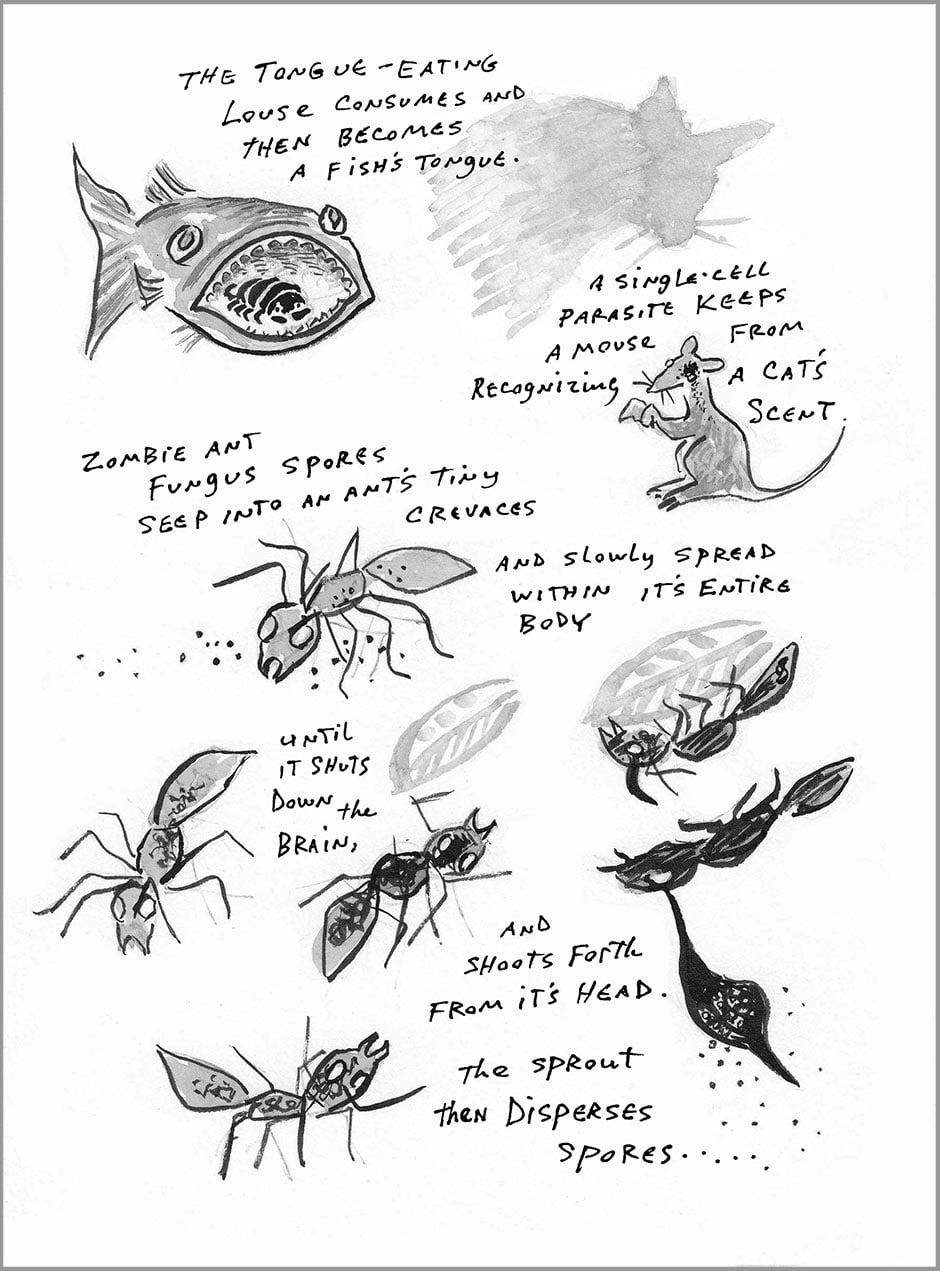 THE TONGUE-EATING
LOUSE CONSUMES AND
THEN BECOMES
A FISH'S TONGUE.
A SINGLE-CELL
PARASITE KEEPS
A MOUSE FROM
RECOGNIZING A CAT'S
SCENT.
ZOMBIE ANT
FUNGUS SPORES
SEEP INTO AN ANT'S TINY
CREVACES
AND SLOWLY SPREAD
WITHIN IT'S ENTIRE
BODY
UNTIL
IT SHUTS
DOWN the
BRAIN,
AND
SHOOTS FORTH
FROM IT'S HEAD.
The SPROUT
then DISPERSES
SPORES.....